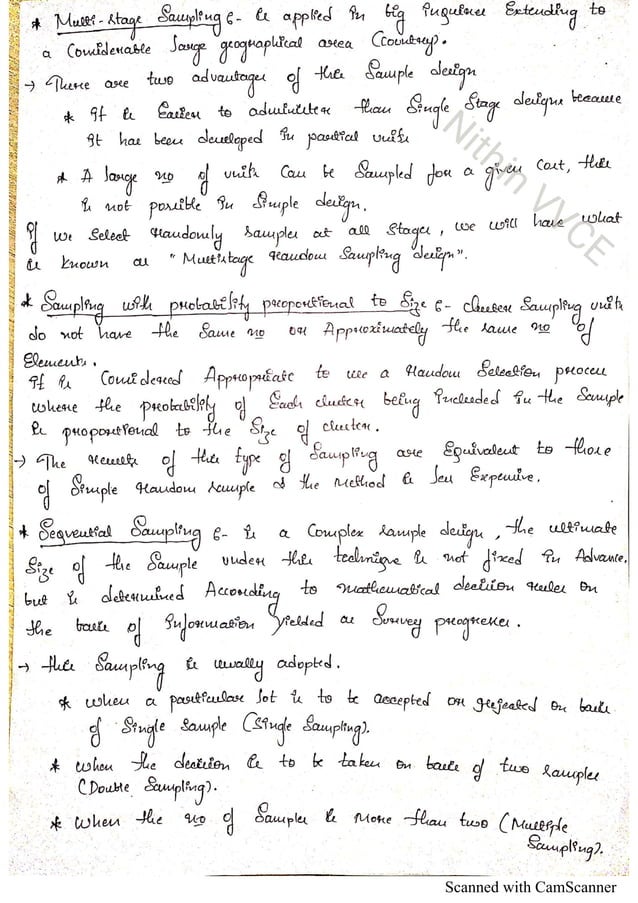 * Multi-stage Sampling :- is applied in big inquiries Extending to
a Considerable large geographical area (Country).
→ There are two advantages of this Sample design
* It is Easier to administer than Single Stage designs because
It has been developed in partial units
* A large no of units Can be Sampled for a given Cost, this
is not possible in Simple design.
If we Select randomly samples at all Stages, we will have what
is known as "Multistage random Sampling design".
* Sampling with probability proportional to Size :- cluster Sampling units
do not have the Same no or Approximately the same no of
Elements.
It is Considered Appropriate to use a Random Selection process
where the probability of Each cluster being Included in the Sample
is proportional to the Size of cluster.
→ The results of this type of Sampling are Equivalent to those
of Simple random sample & the Method is less Expensive.
* Sequential Sampling :- is a Complex sample design, the ultimate
Size of the Sample under this technique is not fixed in Advance,
but is determined According to mathematical decision rules on
the basis of Information Yielded as Survey progresses.
→ this Sampling is usually adopted.
* when a particular lot is to be accepted or rejected on basis
of Single Sample (Single Sampling).
* when the decision is to be taken on basis of two samples
(Double Sampling).
* when the no of Samples is more than two (Multiple
Sampling).
Nithin VVCE
Scanned with CamScanner